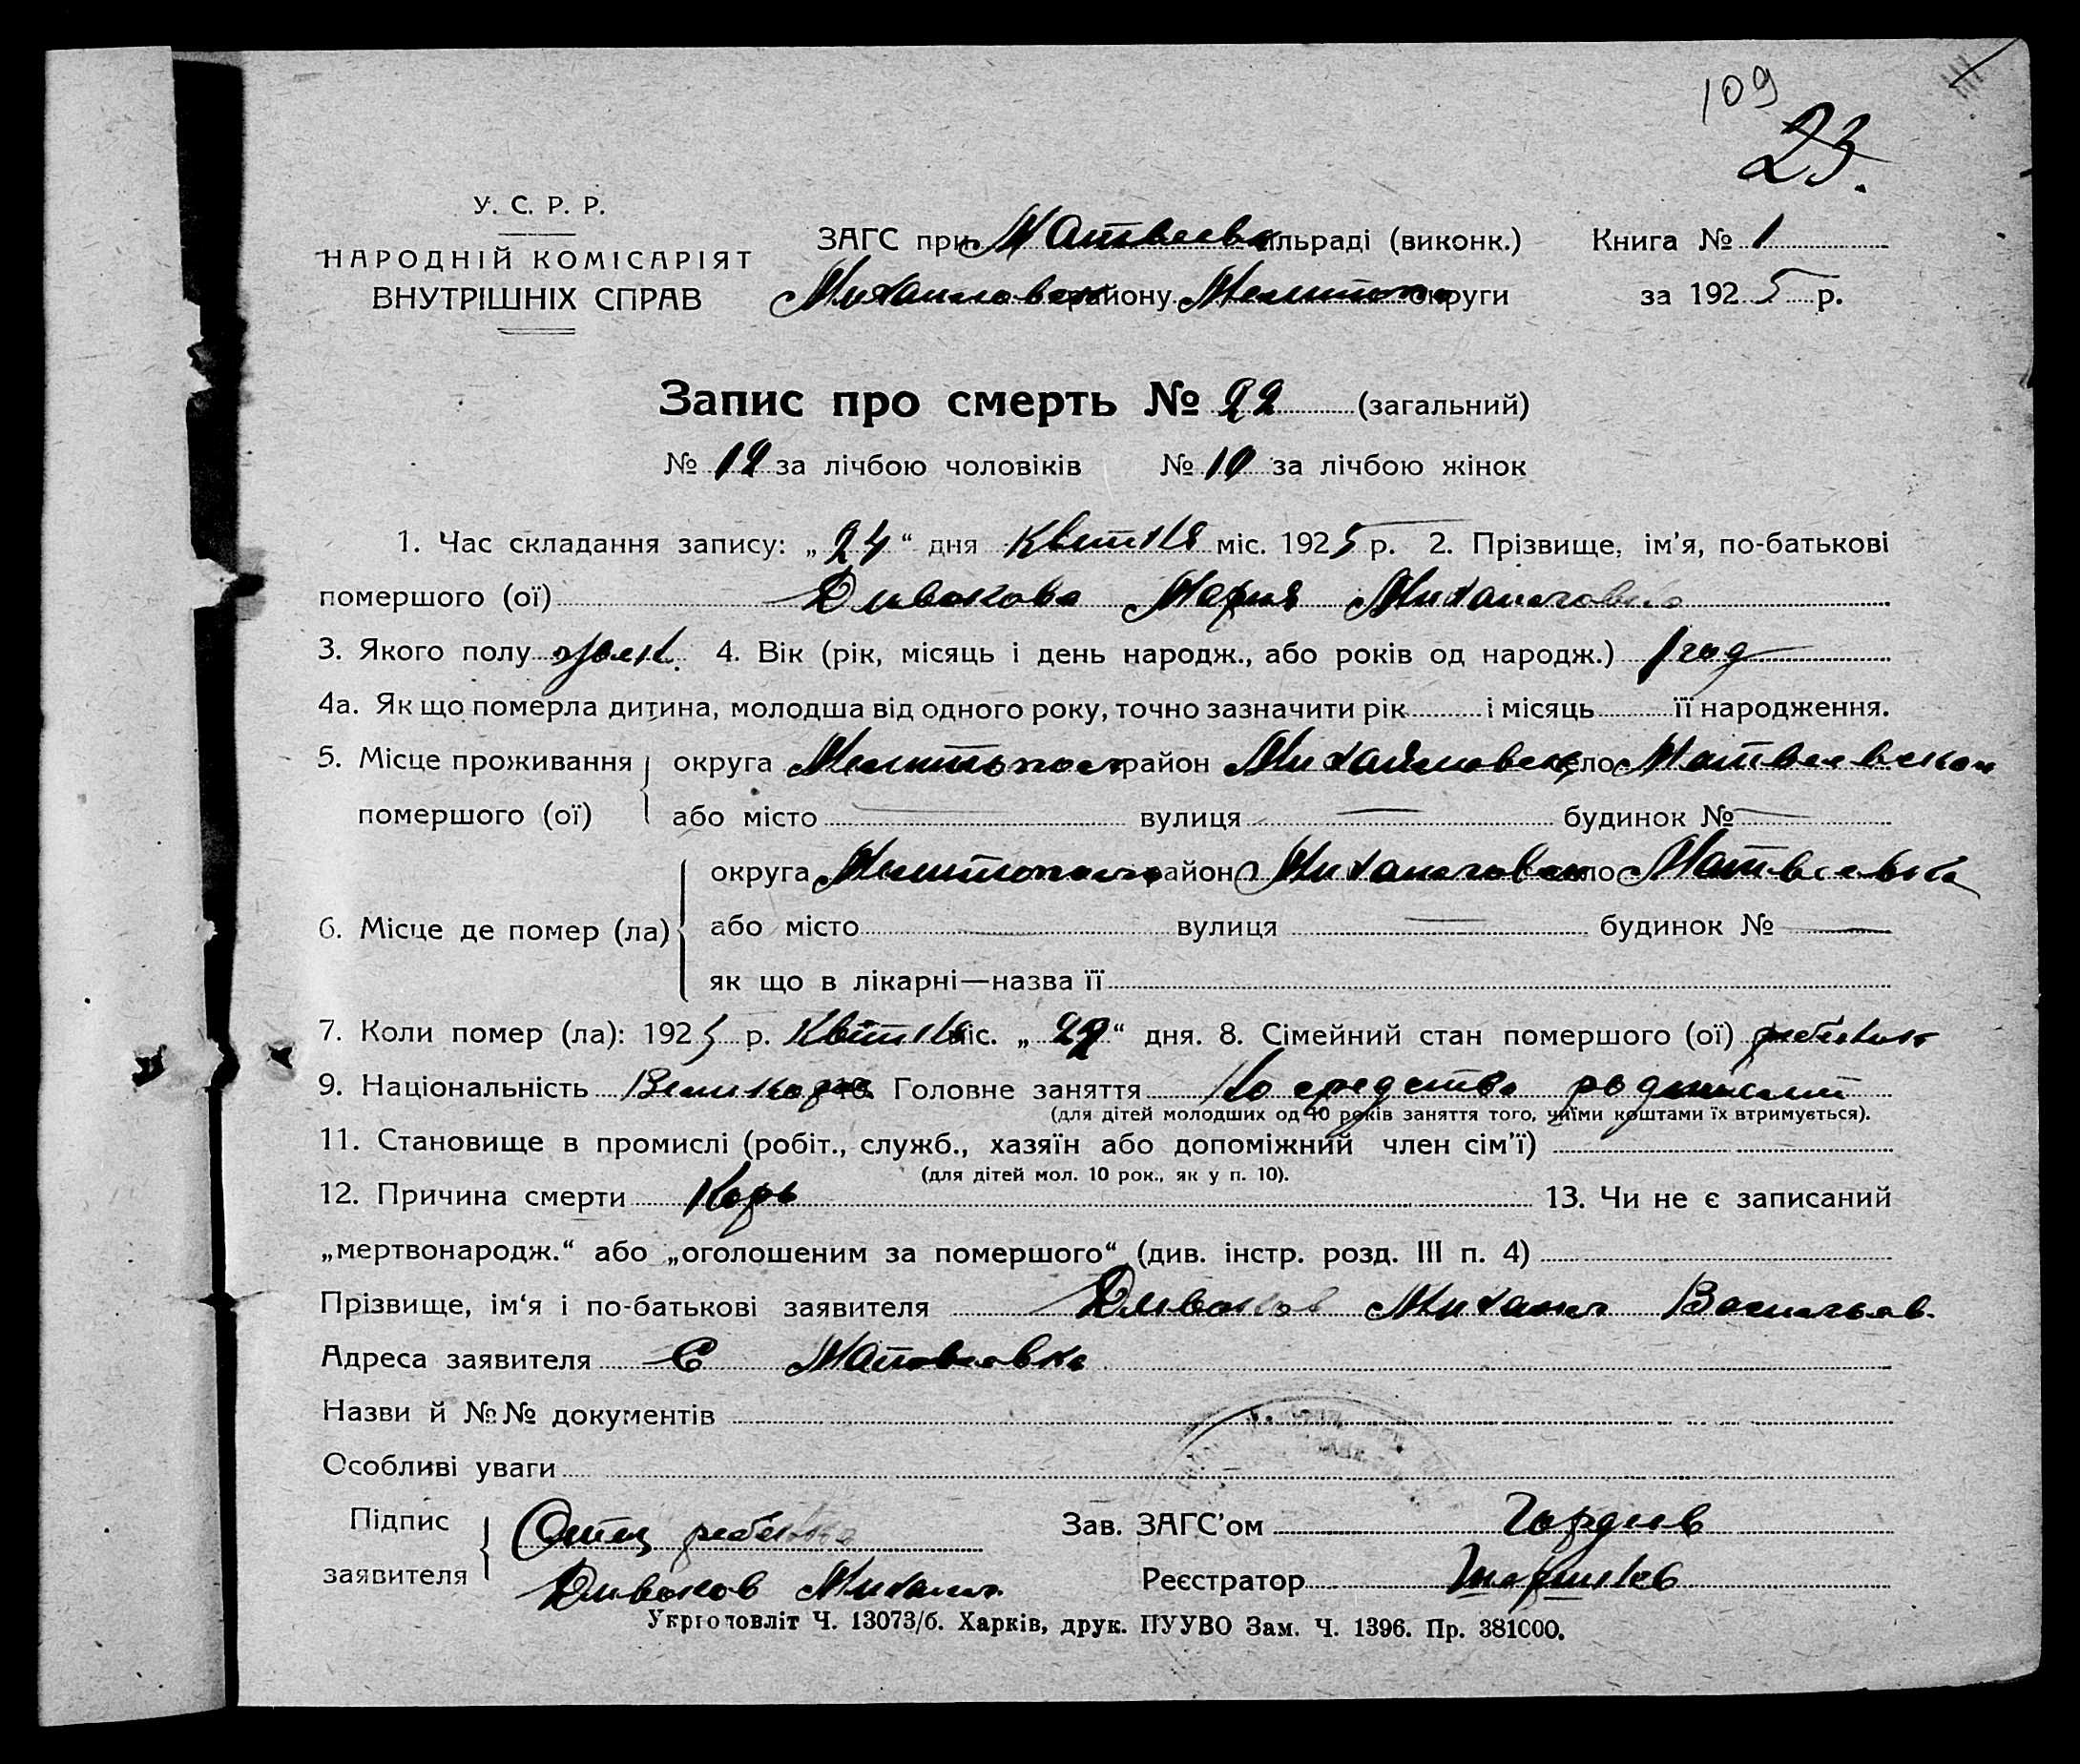 109
23.
У. С. Р. Р.
НАРОДНІЙ КОМІСАРІЯТ
ВНУТРІШНІХ СПРАВ
ЗАГС при Матвеевк ільраді (виконк.) Книга № 1
Михайловск району Мелитопо округи за 1925 р.
Запис про смерть № 22 (загальний)
№ 12 за лічбою чоловіків № 10 за лічбою жінок
1. Час складання запису: „24“ дня Квітня міс. 1925 р. 2. Прізвище, ім'я, по-батькові
помершого (ої) Дивакова Мария Михайловна
3. Якого полу жен. 4. Вік (рік, місяць і день народж., або років од народж.) 1 год
4а. Як що померла дитина, молодша від одного року, точно зазначити рік і місяць її народження.
5. Місце проживання помершого (ої) округа Мелитопол район Михайловск село Матвеевском
або місто вулиця будинок №
6. Місце де помер (ла) округа Мелитополь район Михайловск село Матвеевка
або місто вулиця будинок №
як що в лікарні—назва її
7. Коли помер (ла): 1925 р. Квітня міс. „22“ дня. 8. Сімейний стан помершого (ої) ребенок
9. Національність Великорос 10. Головне заняття На средства родителей
(для дітей молодших од 10 років заняття того, чиїми коштами їх втримується).
11. Становище в промислі (робіт., служб., хазяїн або допоміжний член сім'ї)
(для дітей мол. 10 рок., як у п. 10).
12. Причина смерти Корь 13. Чи не є записаний
„мертвонародж.“ або „оголошеним за помершого“ (див. інстр. розд. III п. 4)
Прізвище, ім'я і по-батькові заявителя Диваков Михаил Васильев.
Адреса заявителя С Матвеевка
Назви й №№ документів
Особливі уваги
Підпис заявителя Отец ребенка Зав. ЗАГС'ом Гордиев
Диваков Михаил Реєстратор
Укрголовліт Ч. 13073/б. Харків, друк. ПУУВО Зам. Ч. 1396. Пр. 381000.